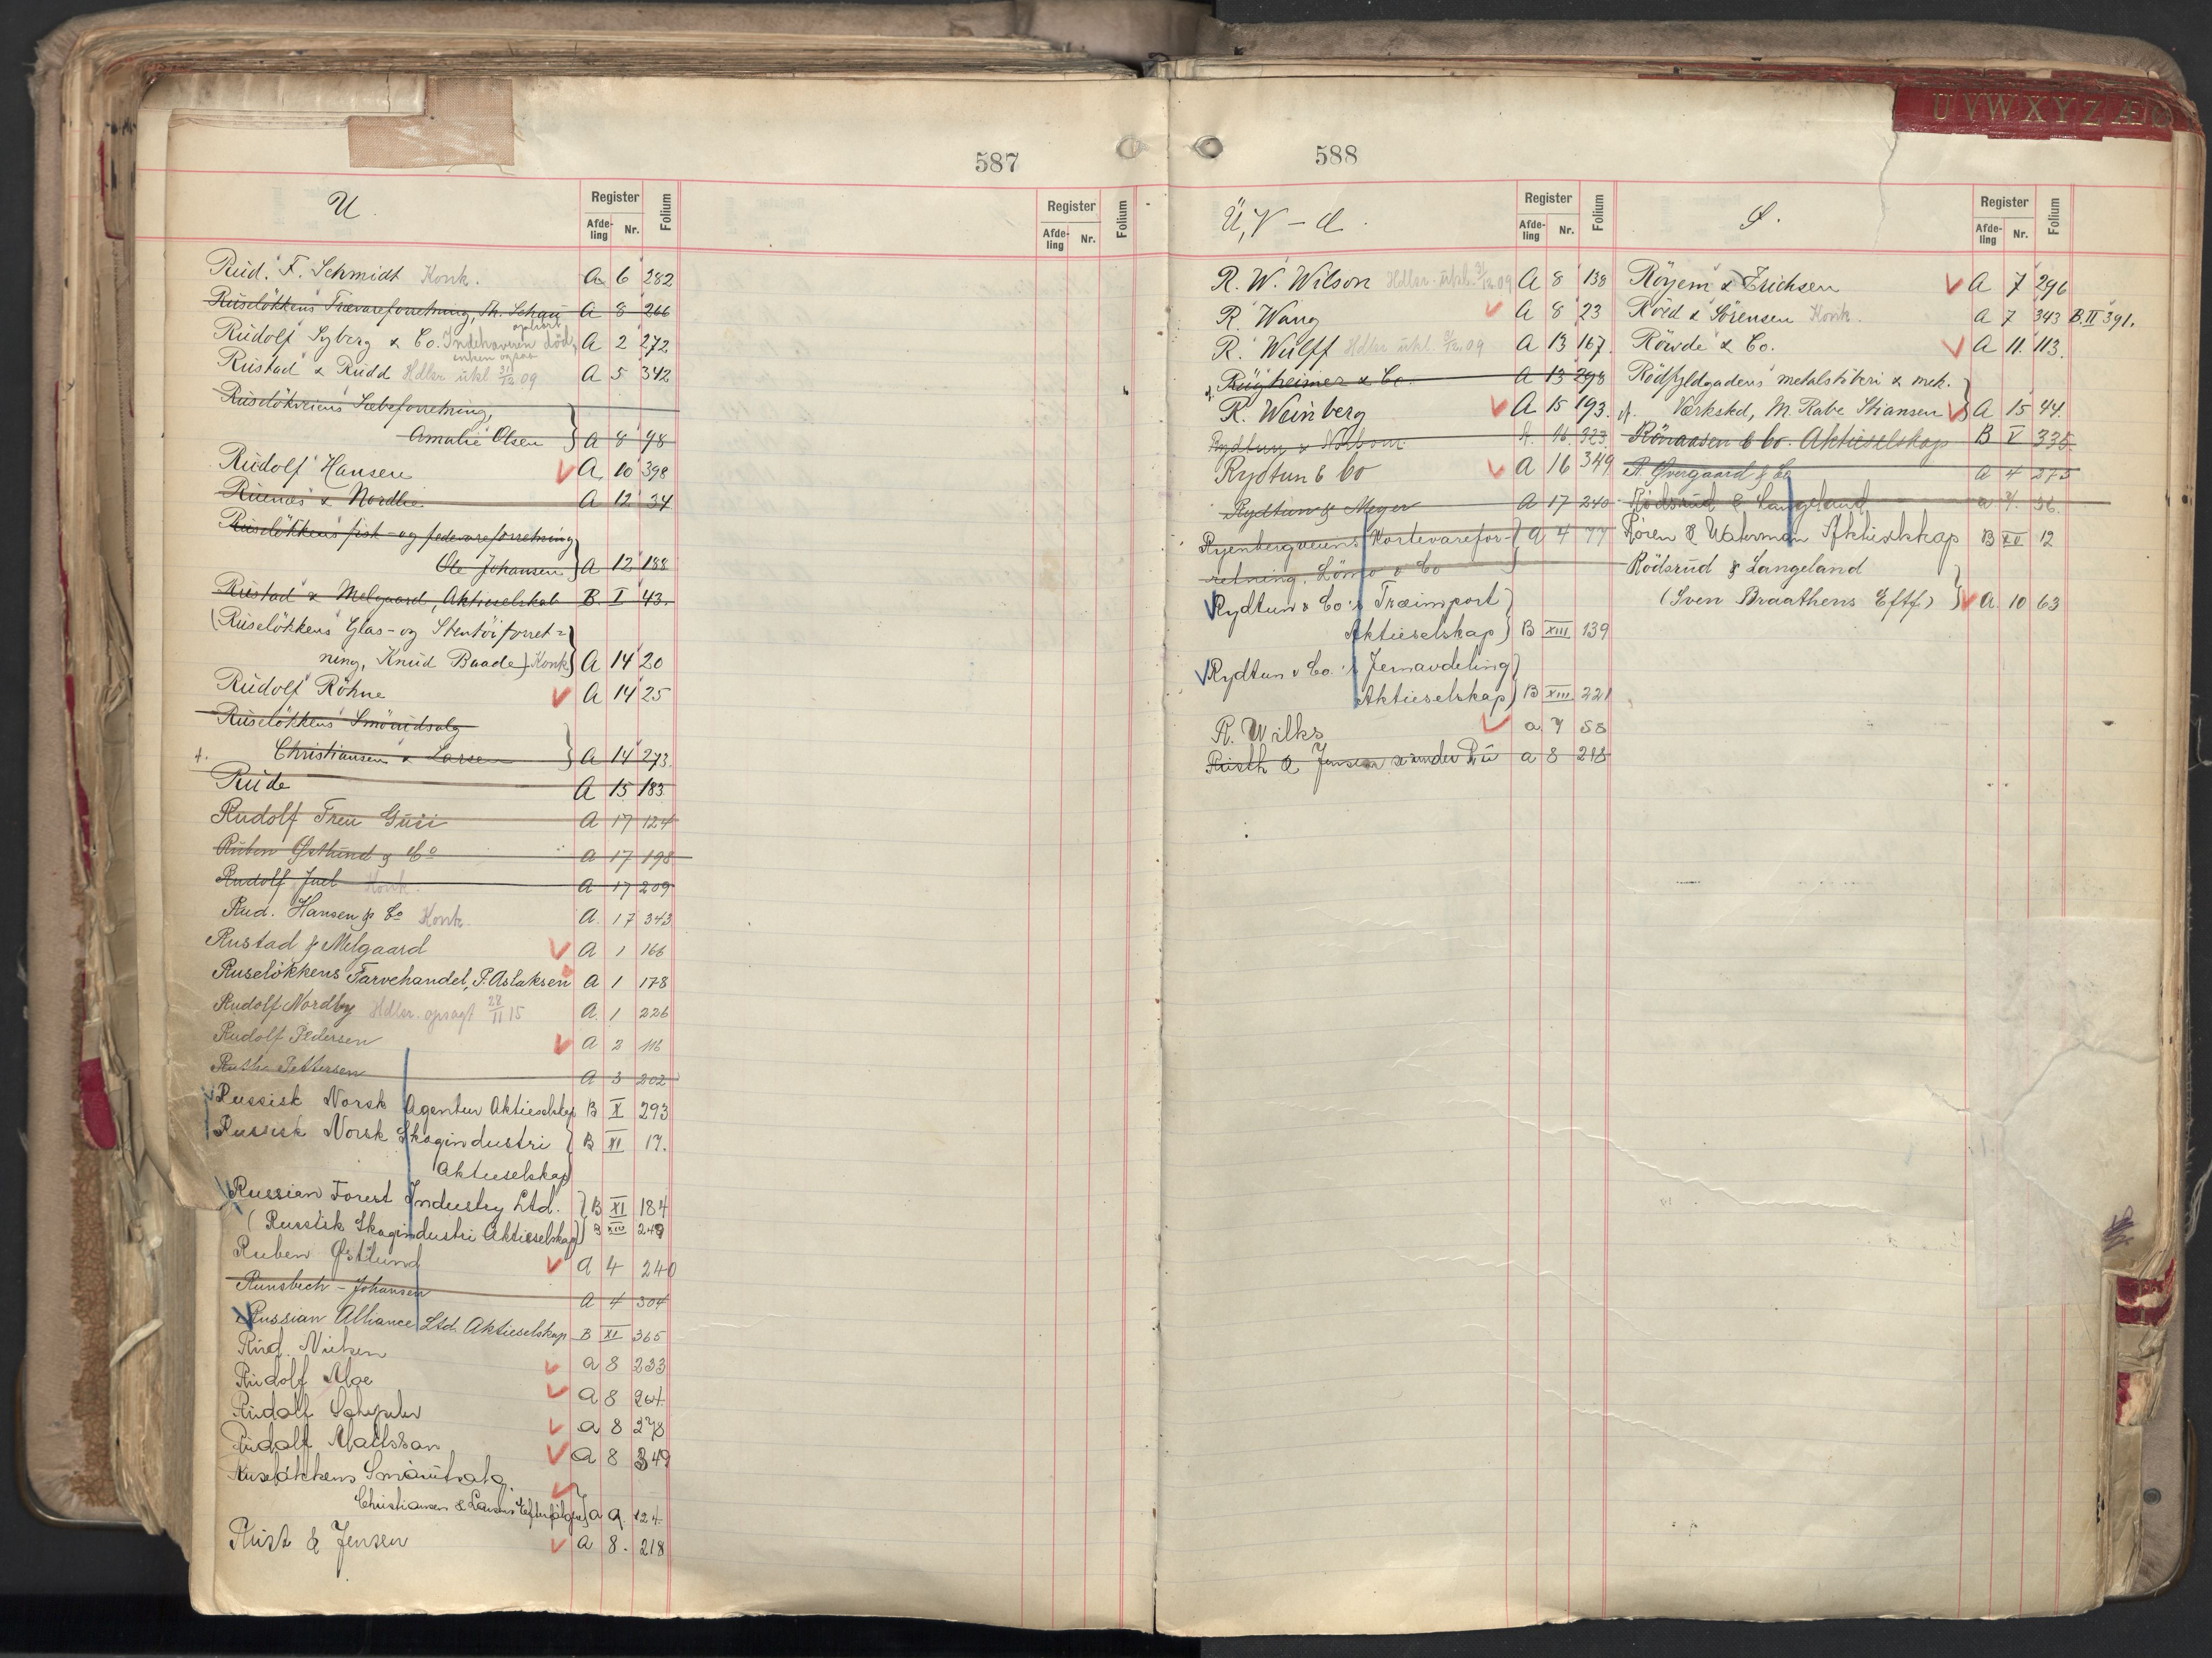 587
U
Register
Afde-
ling
Nr.
Folium
Register
Afde-
ling
Nr.
Folium
Rud. F. Schmidt Konk. A 6 282
Ruselökkens Trævareforretning, Th. Schau A 8 266
ophört
Rudolf Syberg & Co. Indehaveren död, A 2 272
enken ogsaa
Rustad & Rudd Hdler ukl 31/12 09 A 5 342
Ruselökveiens Sæbeforretning,
Amalie Olsen } A 8 98
Rudolf Hansen A 10 398
Ruenæs & Nordlie A 12 34
Ruselökkens fisk- og fedevareforretning
Ole Johansen } A 12 188
Rustad & Melgaard, Aktieselskab B. I 43.
(Ruselökkens Glas- og Stentöiforret=
ning, Knud Baade) Konk } A 14 20
Rudolf Röhne A 14 25
Ruselökkens Smörudsalg
Christiansen & Larsen } A 14 273.
Rude A 15 183
Rudolf Treu A 17 124
Ruben Østlund & Co A 17 198
Rudolf Juel Konk. A 17 209
Rud. Hansen & Co Konk. A. 17 343
Rustad & Melgaard A 1 166
Ruselökkens Farvehandel, P. Aslaksen A 1 178
Rudolf Nordby Hdler. opsagt 28/11 15 A. 1 226
Rudolf Pedersen A 2 116
Ruth Pettersen A 3 202
Russisk Norsk Agentur Aktieselskap B X 293
Russisk Norsk Skogindustri } B XI 17.
Aktieselskap
Russian Forest Industry Ltd. } B XI 184
(Russisk Skogindustri Aktieselskap) B XIII 249
Ruben Østlund A 4 240
Runsbech-Johansen A 4 304
Russian Alliance Ltd. Aktieselskap B XI 365
Rud. Nielsen a 8 233
Rudolf Moe a 8 264
Rudolf a 8 278
Rudolf Mattsson a 8 349
Ruselökkens Smörutsalg,
Christiansen & Larsens Efterfölger } a 9. 124.
Rust & Jensen a 8. 218
588
U V W X Y Z Æ Ø
Ü, V - Æ.
Register
Afde-
ling
Nr.
Folium
Ø.
Register
Afde-
ling
Nr.
Folium
R. W. Wilson Hdler. ukl. 31/12 09 A 8 138
R. Wang A 8 23
R. Wulff Hdler ukl. 09 A 13 167.
Rügheimer & Co. A 13 298
R. Weinberg A 15 193.
Rydtun & Nilsson A. 16. 323.
Rydtun & Co A 16 349
Rydtun & Meyer A 17 240
Ryenbergveiens Kortevarefor- } a 4 77
retning, Lömo & Co
Rydtun & Co's Træimport
Aktieselskap) B XIII 139
Rydtun & Co.'s Jernavdeling
Aktieselskap) B XIII 221
R. Wilks a 7 58
Rusth & Jensen se under Ru a 8 218
Röyem & Erichsen A 7 296
Röed & Sörensen Konk. A 7 343 B. II 391.
Röwde & Co. A 11. 113.
Rödfyldgadens metalstöberi & mek.
Værksted, M. Rabe Stiansen } A 15 44.
Rönaasen & Co. Aktieselskap B V 335
R. Øvergaard & Co A 4 273
Rödsrud & Langeland a 7. 36.
Rören & Waterman Aktieselskap B XII 12
Rödsrud & Langeland
(Sven Braathens Eftf.) } A 10 63